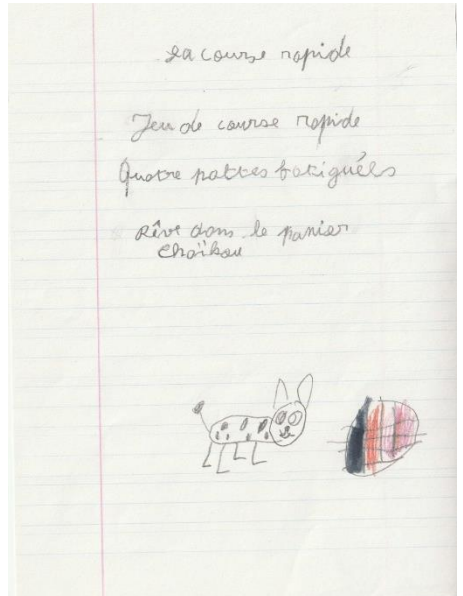 La course rapide
Jeu de course rapide
Quatre pattes fatiguées
Rêve dans le panier
Chaïbou